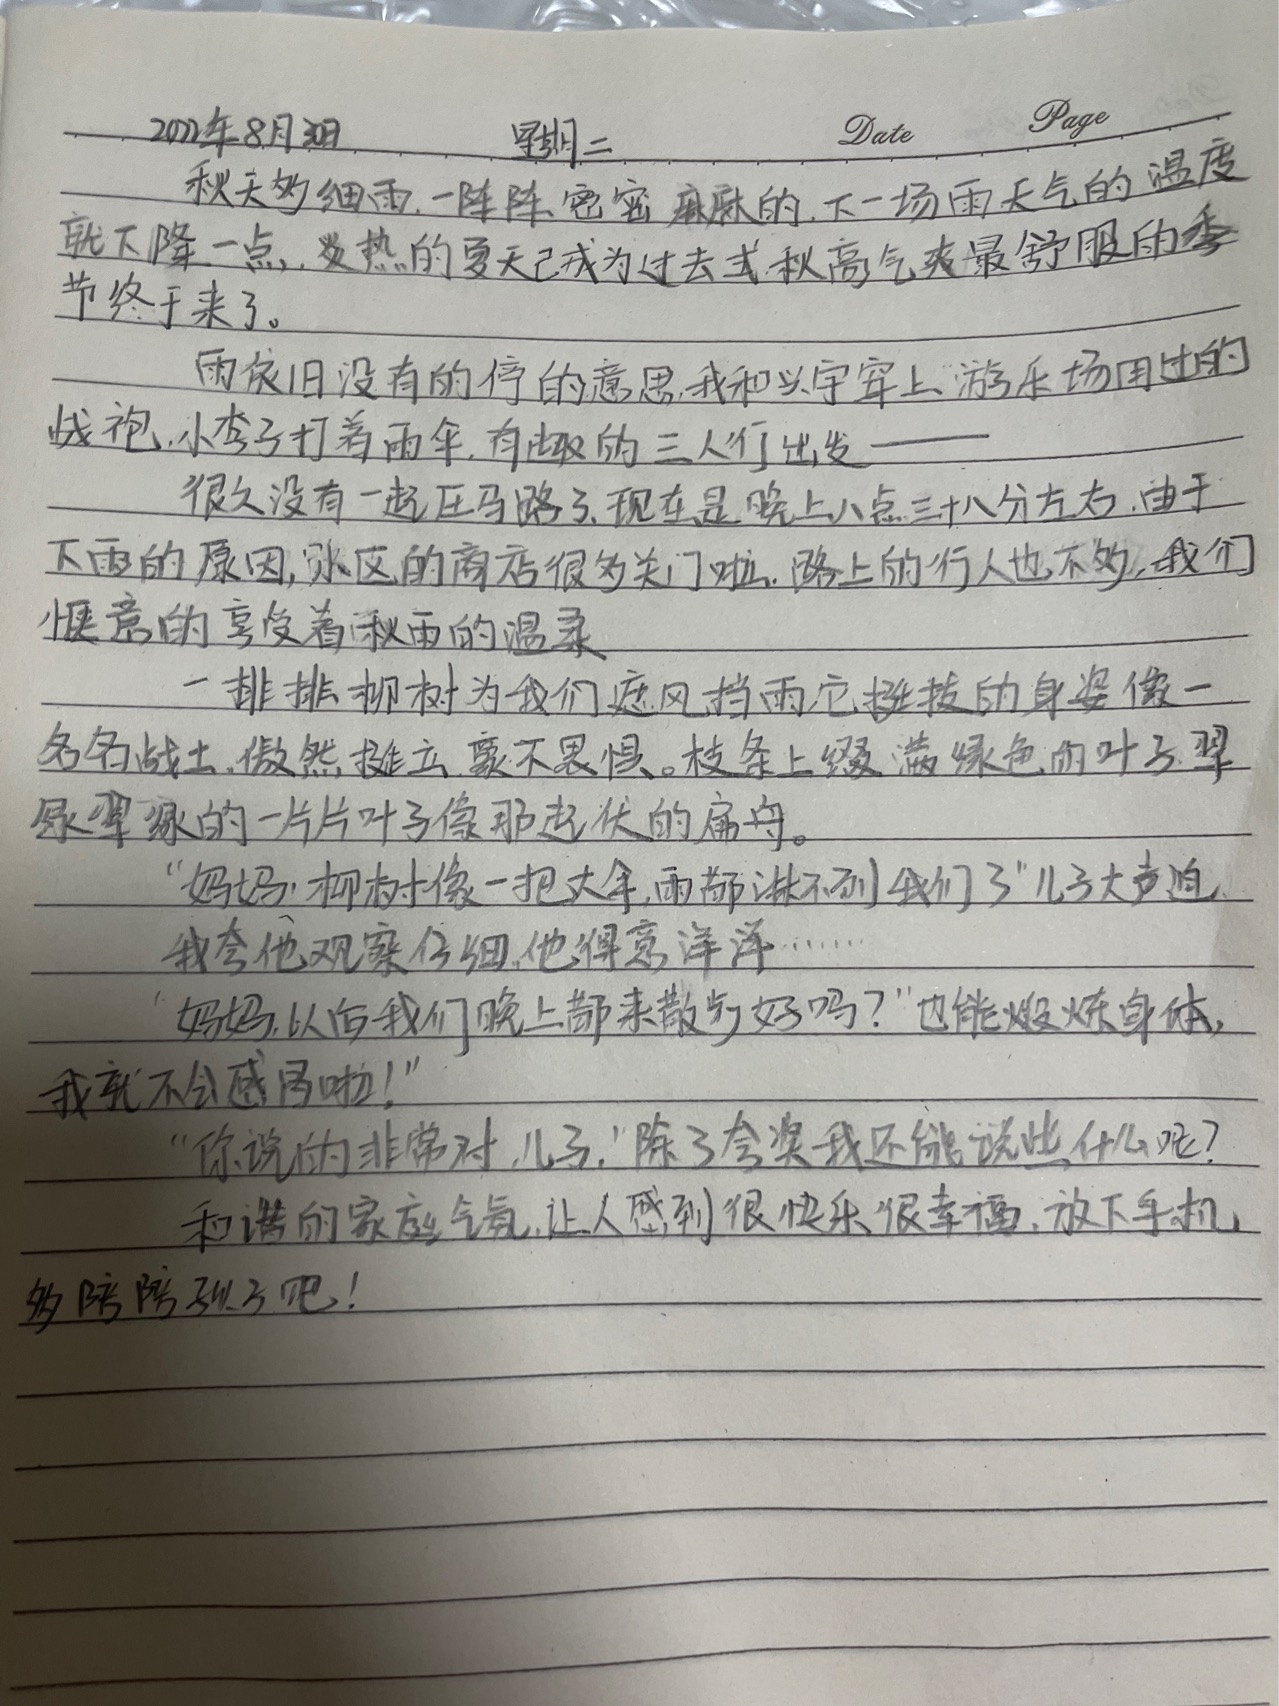 2022年8月30日 星期二 Date Page
秋天的细雨,一阵阵,密密麻麻的,下一场雨天气的温度
就下降一点,发热的夏天已成为过去式,秋高气爽最舒服的季
节终于来了。
雨依旧没有的停的意思,我和兴宇穿上游乐场用过的
战袍,小李子打着雨伞,有趣的三人行出发——
很久没有一起压马路了,现在是晚上八点三十八分左右,由于
下雨的原因,小区的商店很多关门啦,路上的行人也不多,我们
惬意的享受着秋雨的温柔
一排排柳树为我们遮风挡雨它挺拔的身姿像一
名名战士,傲然挺立,豪不畏惧。枝条上缀满绿色的叶子,翠
绿翠绿的一片片叶子像那起伏的扁舟。
"妈妈,柳树像一把大伞,雨都淋不到我们了"儿子大声道,
我夸他观察仔细,他得意洋洋……
"妈妈,以后我们晚上都来散步好吗?"也能煅炼身体,
我就不会感冒啦!"
"你说的非常对,儿子,"除了夸奖我还能说些什么呢?
和谐的家庭气氛,让人感到很快乐,很幸福,放下手机,
多陪陪孩子吧!